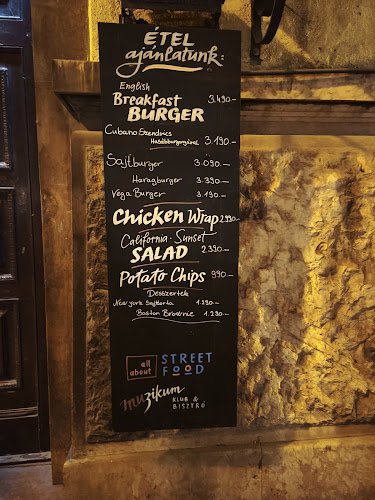 ÉTEL
ajánlatunk:
English
Breakfast 3.490.-
BURGER
Cubano Szendvics
Hasábburgonyával 3.190.-
Sajtburger 3.090.-
Haragburger 3.390.-
Vega Burger 3.190.-
Chicken Wrap 2.990.-
California Sunset
SALAD 2.390.-
Potato Chips 990.-
Desszertek
New york Sajttorta 1.290.-
Boston Brownie 1.290.-
all about STREET FOOD
muzikum KLUB & BISZTRÓ